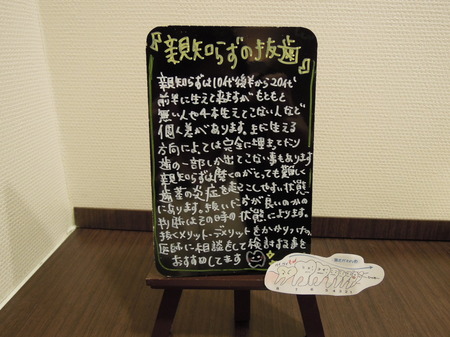 『親知らずの抜歯』
親知らずは10代後半から20代
前半に生えて来ますがもともと
無い人や4本生えてこない人など
個人差があります。上に生える
方向によっては完全に埋まってたり
歯の一部しか出てこない事もあります
親知らずは磨くのがとっても難しく
歯茎の炎症を起こしやすい状態
になります。抜いた方が良いのかの
判断はその時の状態によります。
抜くメリット・デメリットをかかりつけの
医師に相談をして検討する事を
おすすめします